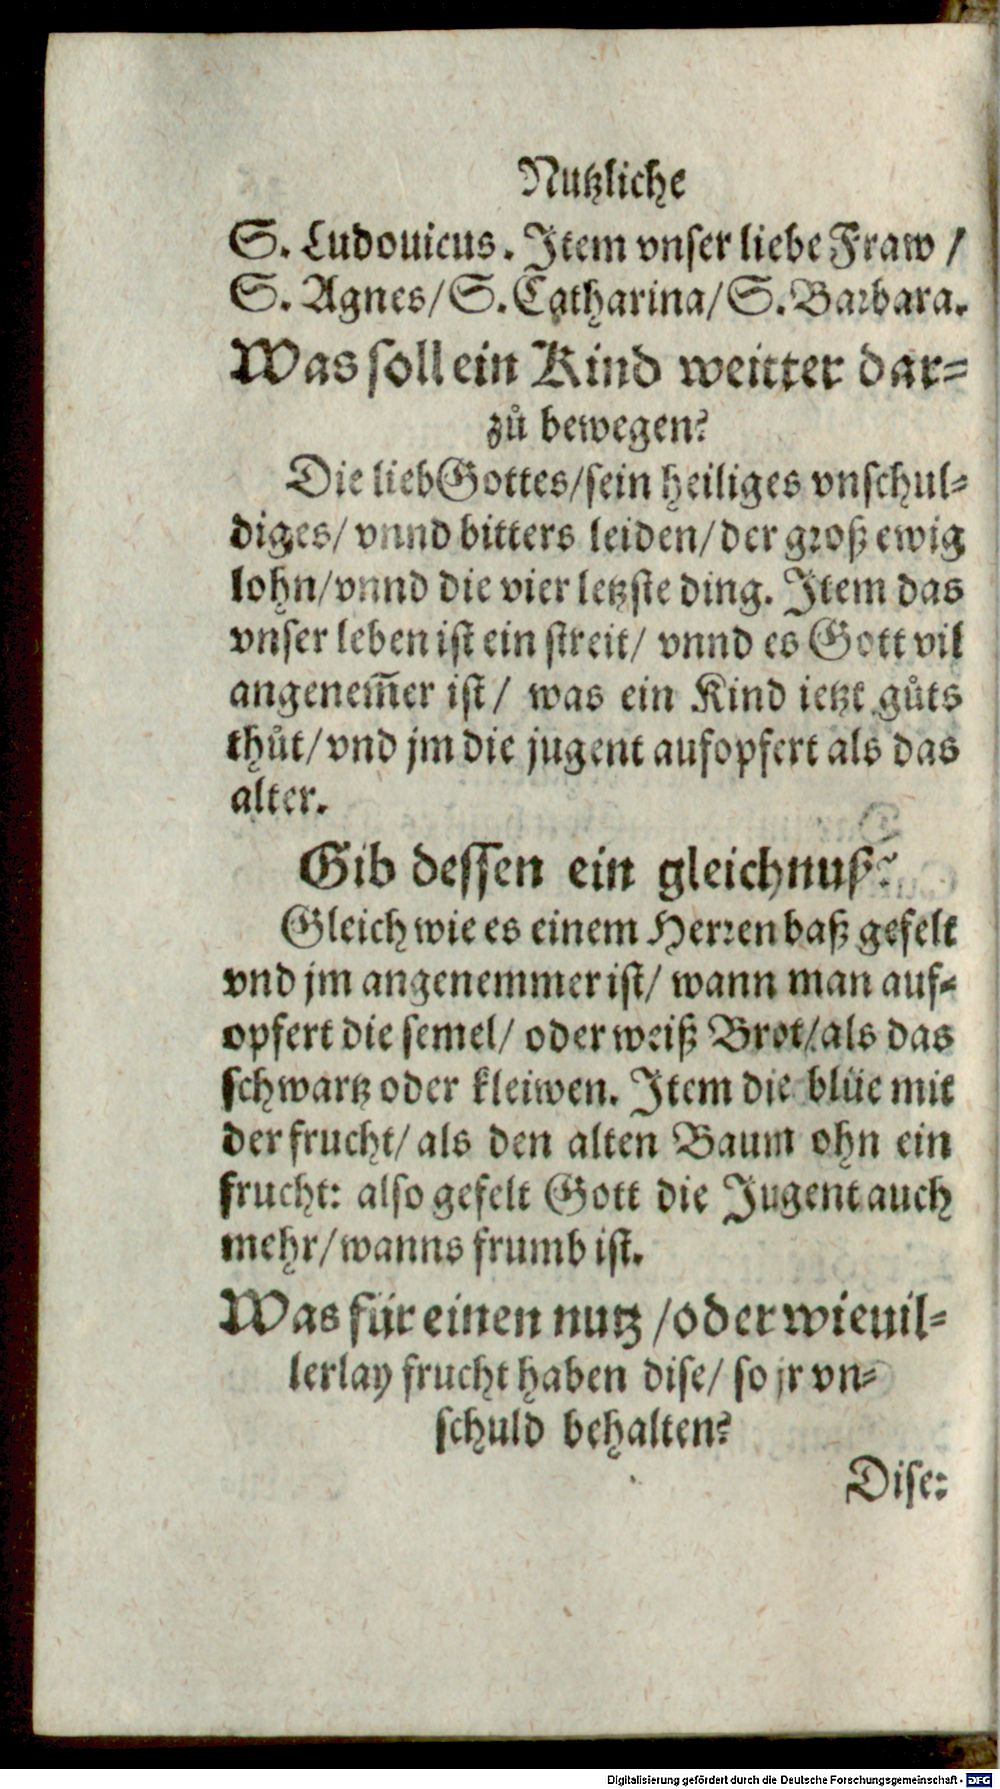 Nutzliche
S. Ludouicus. Item vnser liebe Fraw /
S. Agnes/ S. Catharina/ S. Barbara.
Was soll ein Kind weitter dar=
zů bewegen?
Die lieb Gottes/ sein heiliges vnschul=
diges/ vnnd bitters leiden/ der groß ewig
lohn/ vnnd die vier letzste ding. Item das
vnser leben ist ein streit/ vnnd es Gott vil
angenem̃er ist/ was ein Kind ietzt gůts
thůt/ vnd jm die jugent aufopfert als das
alter.
Gib dessen ein gleichnuß?
Gleich wie es einem Herren baß gefelt
vnd jm angenemmer ist/ wann man auf=
opfert die semel/ oder weiß Brot/ als das
schwartz oder kleiwen. Item die blüe mit
der frucht/ als den alten Baum ohn ein
frucht: also gefelt Gott die Jugent auch
mehr/ wanns frumb ist.
Was für einen nutz / oder wieuil=
lerlay frucht haben dise/ so jr vn=
schuld behalten?
Dise:
Digitalisierung gefördert durch die Deutsche Forschungsgemeinschaft - DFG